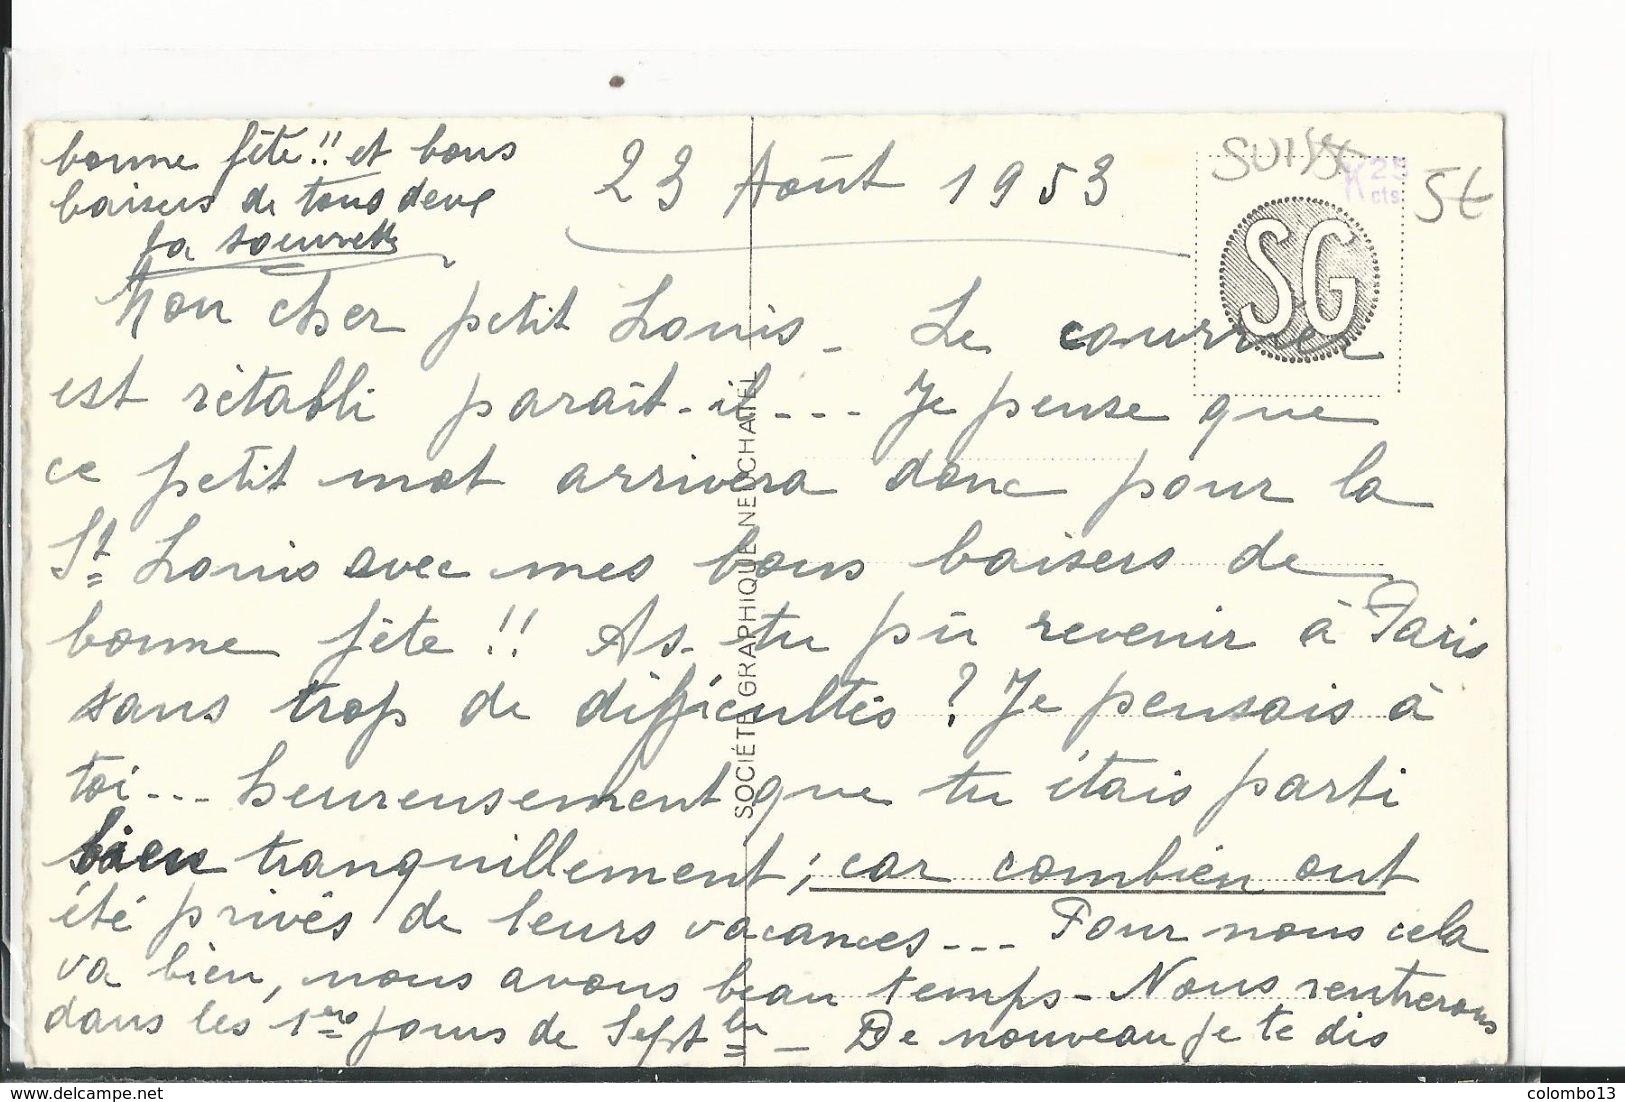 23 Août 1953
SUISSE
25
cts
5€
SG
Mon cher petit Louis - Le courrier
est rétabli paraît-il --- Je pense que
ce petit mot arrivera donc pour la
St Louis avec mes bons baisers de
bonne fête !! As-tu pû revenir à Paris
sans trop de difficultés ? Je pensais à
toi --- heureusement que tu étais parti
bien tranquillement ; car combien ont
été privés de leurs vacances --- Pour nous cela
va bien, nous avons beau temps - Nous rentrerons
dans les 1ers jours de Septbre - De nouveau je te dis
bonne fête !! et bons
baisers de tous deux
ta soeurette
SOCIÉTÉ GRAPHIQUE NEUCHATEL
https://www.delcampe.net
colombo13